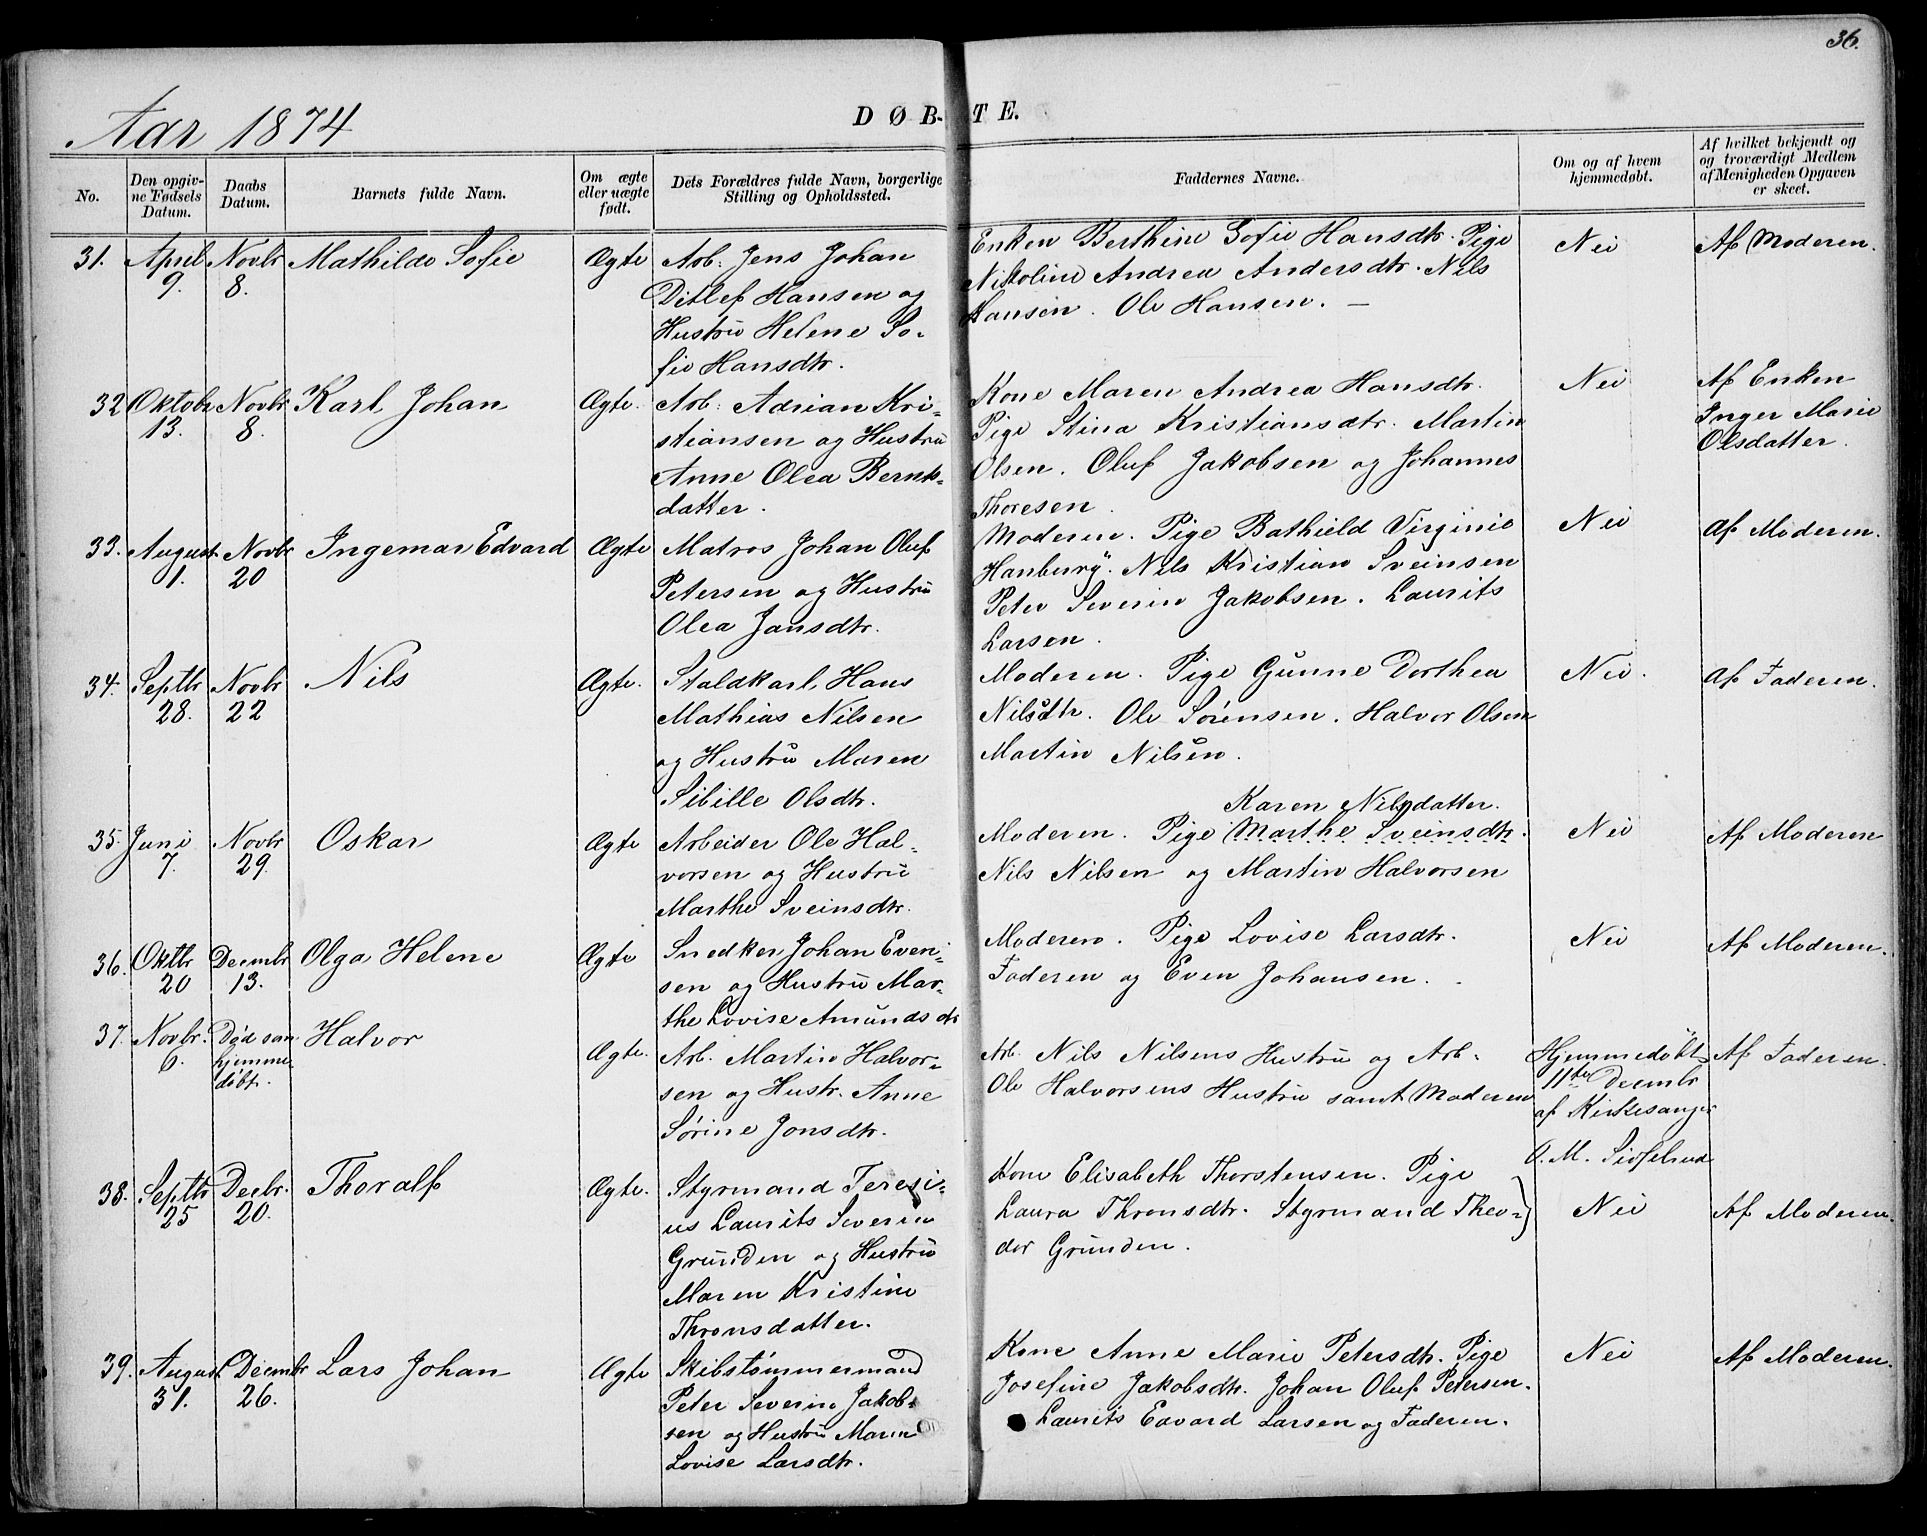 36.
Aar 1874
DØBTE.
No.
Den opgiv-
ne Fødsels
Datum.
Daabs
Datum.
Barnets fulde Navn.
Om ægte
eller uægte
født.
Dets Forældres fulde Navn, borgerlige
Stilling og Opholdssted.
Faddernes Navne.
Om og af hvem
hjemmedøbt.
Af hvilket bekjendt og
og troværdigt Medlem
af Menigheden Opgaven
er skeet.
31.
April
9.
Novbr
8.
Mathilde Sofie
Ægte
Arb. Jens Johan
Ditlef Hansen og
Hustru Helene So-
fie Hansdtr.
Enken Berthine Sofie Hansdtr. Pige
Nikoline Andrea Andersdtr. Nils
Hansen. Ole Hansen. —
Nei
Af Moderen.
32
Oktobr
13.
Novbr
8.
Karl Johan
Ægte.
Arb. Adrian Kri-
stiansen og Hustru
Anne Olea Bernts-
datter.
Kone Maren Andrea Hansdtr.
Pige Stina Kristiansdtr. Martin
Olsen. Oluf Jakobsen og Johannes
Thoresen.
Nei
Af Enken
Inger Marie
Olsdatter.
33.
August
1.
Novbr
20
Ingemar Edvard
Ægte
Matros Johan Oluf
Petersen og Hustru
Olea Jansdtr.
Moderen. Pige Bathield Virginie
Hanburg. Nils Kristian Sveinsen
Peter Severin Jakobsen. Laurits
Larsen.
Nei
Af Moderen.
34.
Septbr
28.
Novbr
22
Nils
Ægte.
Staldkarl Hans
Mathias Nilsen
og Hustru Maren
Sibille Olsdtr.
Moderen. Pige Gunne Dorthea
Nilsdtr. Ole Sørensen. Halvor Olsen
Martin Nilsen.
Nei.
Af Faderen.
35.
Juni
7.
Novbr
29.
Oskar
Ægte
Arbeider Ole Hal-
vorsen og Hustru
Marthe Sveinsdtr.
Karen Nilsdatter.
Moderen. Pige Marthe Sveinsdtr.
Nils Nilsen og Martin Halvorsen
Nei
Af Moderen
36.
Oktbr
20
Decmbr
13.
Olga Helene
Ægte
Snedker Johan Even-
sen og Hustru Mar-
the Lovise Amundsdtr
Moderen. Pige Lovise Larsdtr.
Faderen og Even Johansen.
Nei
Af Moderen.
37.
Novbr.
6.
Død som
hjemme-
døbt.
Halvor
Ægte.
Arb. Martin Halvor-
sen og Hustr. Anne
Sørine Jonsdtr.
Arb. Nils Nilsens Hustru og Arb.
Ole Halvorsens Hustru samt Moderen
Hjemmedøbt
11te Decmbr
af Kirkesanger
O. M.
Af Faderen.
38.
Septbr
25
Decbr.
20.
Thoralf
Ægte.
Styrmand Teresi-
us Laurits Severin
Grunden og Hustru
Maren Kristine
Thronsdatter.
Kone Elisabeth Thorstensen. Pige
Laura Thronsdtr. Styrmand Theo-
dor Grunden.
Nei
Af Moderen.
39.
August
31.
Decmbr
26.
Lars Johan
Ægte
Skibstømmermand
Peter Severin Jakob-
sen og Hustru Maren
Lovise Larsdtr.
Kone Anne Marie Petersdtr. Pige
Josefine Jakobsdtr. Johan Oluf Petersen.
Laurits Edvard Larsen og Faderen.
Nei
Af Moderen.